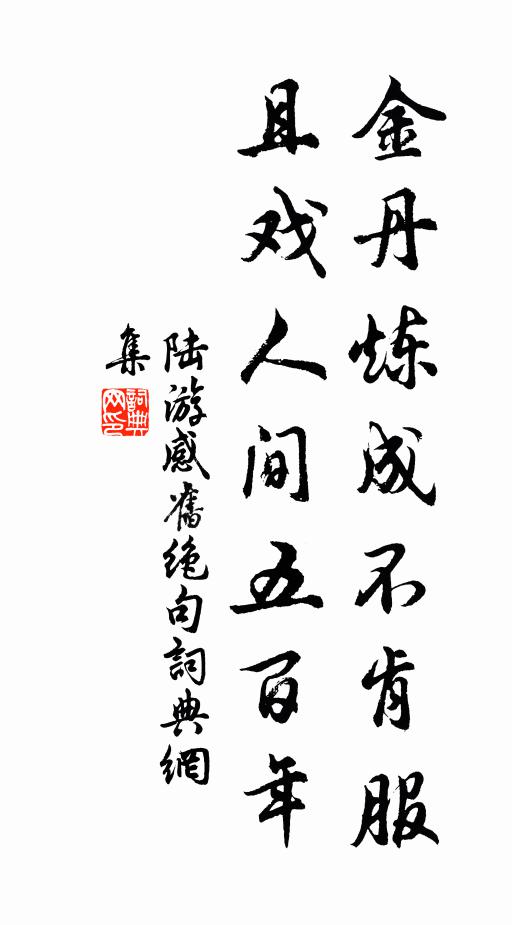 金丹炼成不肯服
且戏人间五百年
陆游感旧绝句詞典網
集
詞典
网印